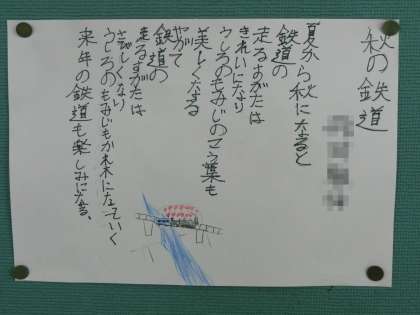 秋の鉄道
夏から秋になると
鉄道の
走るすがたは
きれいになり
うしろのもみじのこう葉も
美しくなる
やがて
鉄道の
走るすがたは
さびしくなり
うしろのもみじもかれ木になっていく
来年の鉄道も楽しみになる。